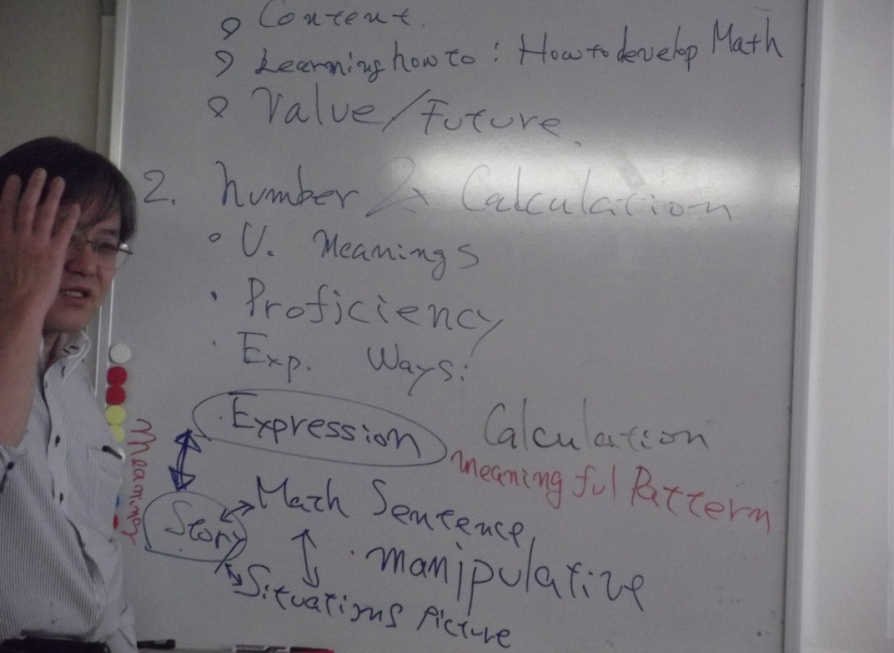 Content.
Learning how to : How to develop Math
Value/Future.
2. Number & Calculation
U. Meanings
Proficiency
Exp. Ways:
Expression Calculation
Meaningful Pattern
Meaning
Story Math Sentence
manipulative
Situations Picture